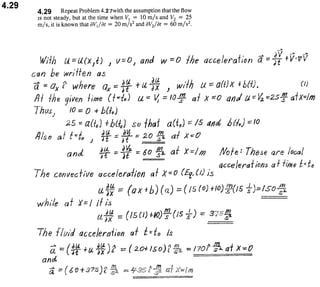 4.29
4.29 Repeat Problem 4.27with the assumption that the flow
is not steady, but at the time when V₁ = 10 m/s and V₂ = 25
m/s, it is known that ∂V₁/∂t = 20 m/s² and ∂V₂/∂t = 60 m/s².
With u = u(x,t) , v=0, and w=0 the acceleration a⃗ = ∂V⃗/∂t + V⃗·∇V⃗
can be written as
a⃗ = aₓ î where aₓ = ∂u/∂t + u ∂u/∂x , with u = a(t)x + b(t). (1)
At the given time (t=t₀) u = V₁ = 10 m/s at x=0 and u = V₂ = 25 m/s at x=1m
Thus, 10 = 0 + b(t₀)
25 = a(t₀) + b(t₀) so that a(t₀) = 15 and b(t₀) = 10
Also at t=t₀ , ∂u/∂t = ∂V₁/∂t = 20 m/s² at x=0
and ∂u/∂t = ∂V₂/∂t = 60 m/s² at x=1m Note: These are local
accelerations at time t=t₀
The convective acceleration at x=0 (Eq.(1) is
u ∂u/∂x = (ax+b)(a) = (15(0)+10) m/s (15 1/s) = 150 m/s²
while at x=1 it is
u ∂u/∂x = (15(1)+10) m/s (15 1/s) = 375 m/s²
The fluid acceleration at t=t₀ is
a⃗ = (∂u/∂t + u ∂u/∂x) î = (20+150) î m/s² = 170 î m/s² at x=0
and
a⃗ = (60+375) î m/s² = 435 î m/s² at x=1m